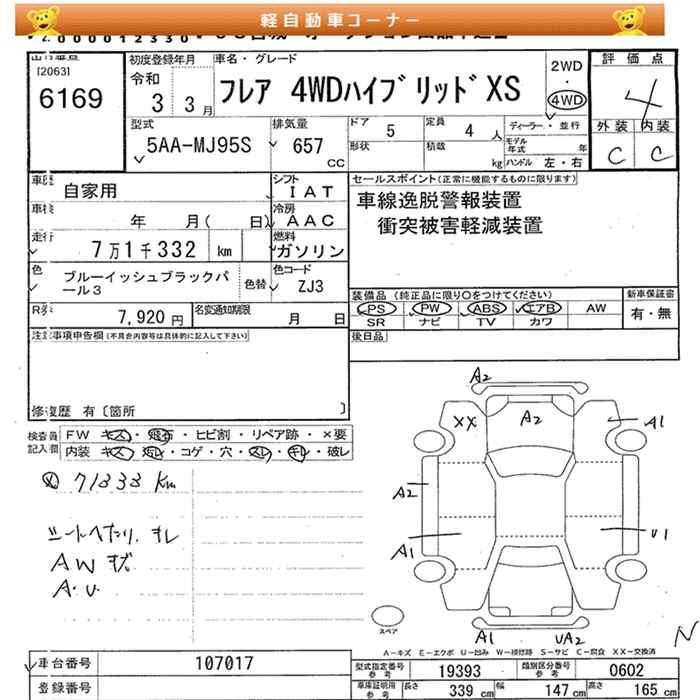 軽自動車コーナー
[2063]
6169
初度登録年月
令和
3 3月
車名・グレード
フレア 4WDハイブリッドXS
2WD
・
4WD
評価点
4
外装 内装
C C
型式
5AA-MJ95S
排気量
657
CC
ドア 5
定員 4 人
形状
積載
kg
ディーラー・並行
モデル年式 年
ハンドル 左・右
車歴
自家用
シフト
IAT
車検
年 月( 日)
冷房
AAC
走行
7万1千332 km
燃料
ガソリン
色
ブルーイッシュブラックパ
ール3
色替
色コード
ZJ3
7,920 円
名変通知期限
月 日
セールスポイント(正常に機能するものに限ります)
車線逸脱警報装置
衝突被害軽減装置
装備品(純正品に限り○をつけてください)
新車保証書
PS PW ABS エアB AW
有・無
SR ナビ TV カワ
後日品
注意事項申告欄(不具合内容等は具体的に記入して下さい)
修復歴 有〔箇所 〕
検査員
記入欄
FW キズ・飛石・ヒビ割・リペア跡・×要
内装 キズ・コゲ・穴・スレ・キレ・破レ
71333 km
シートへたり、キレ
AW キズ
A・U
A2
XX
A2
A1
A2
A1
U1
スペア
A1
UA2
N
A-キズ E-エクボ U-凹み W-補修跡 S-サビ C-腐食 XX-交換済
車台番号
107017
登録番号
型式指定番号
参考
19393
類別区分番号
参考
0602
車庫証明用
参考
長さ 339 cm
幅 147 cm
高さ 165 cm